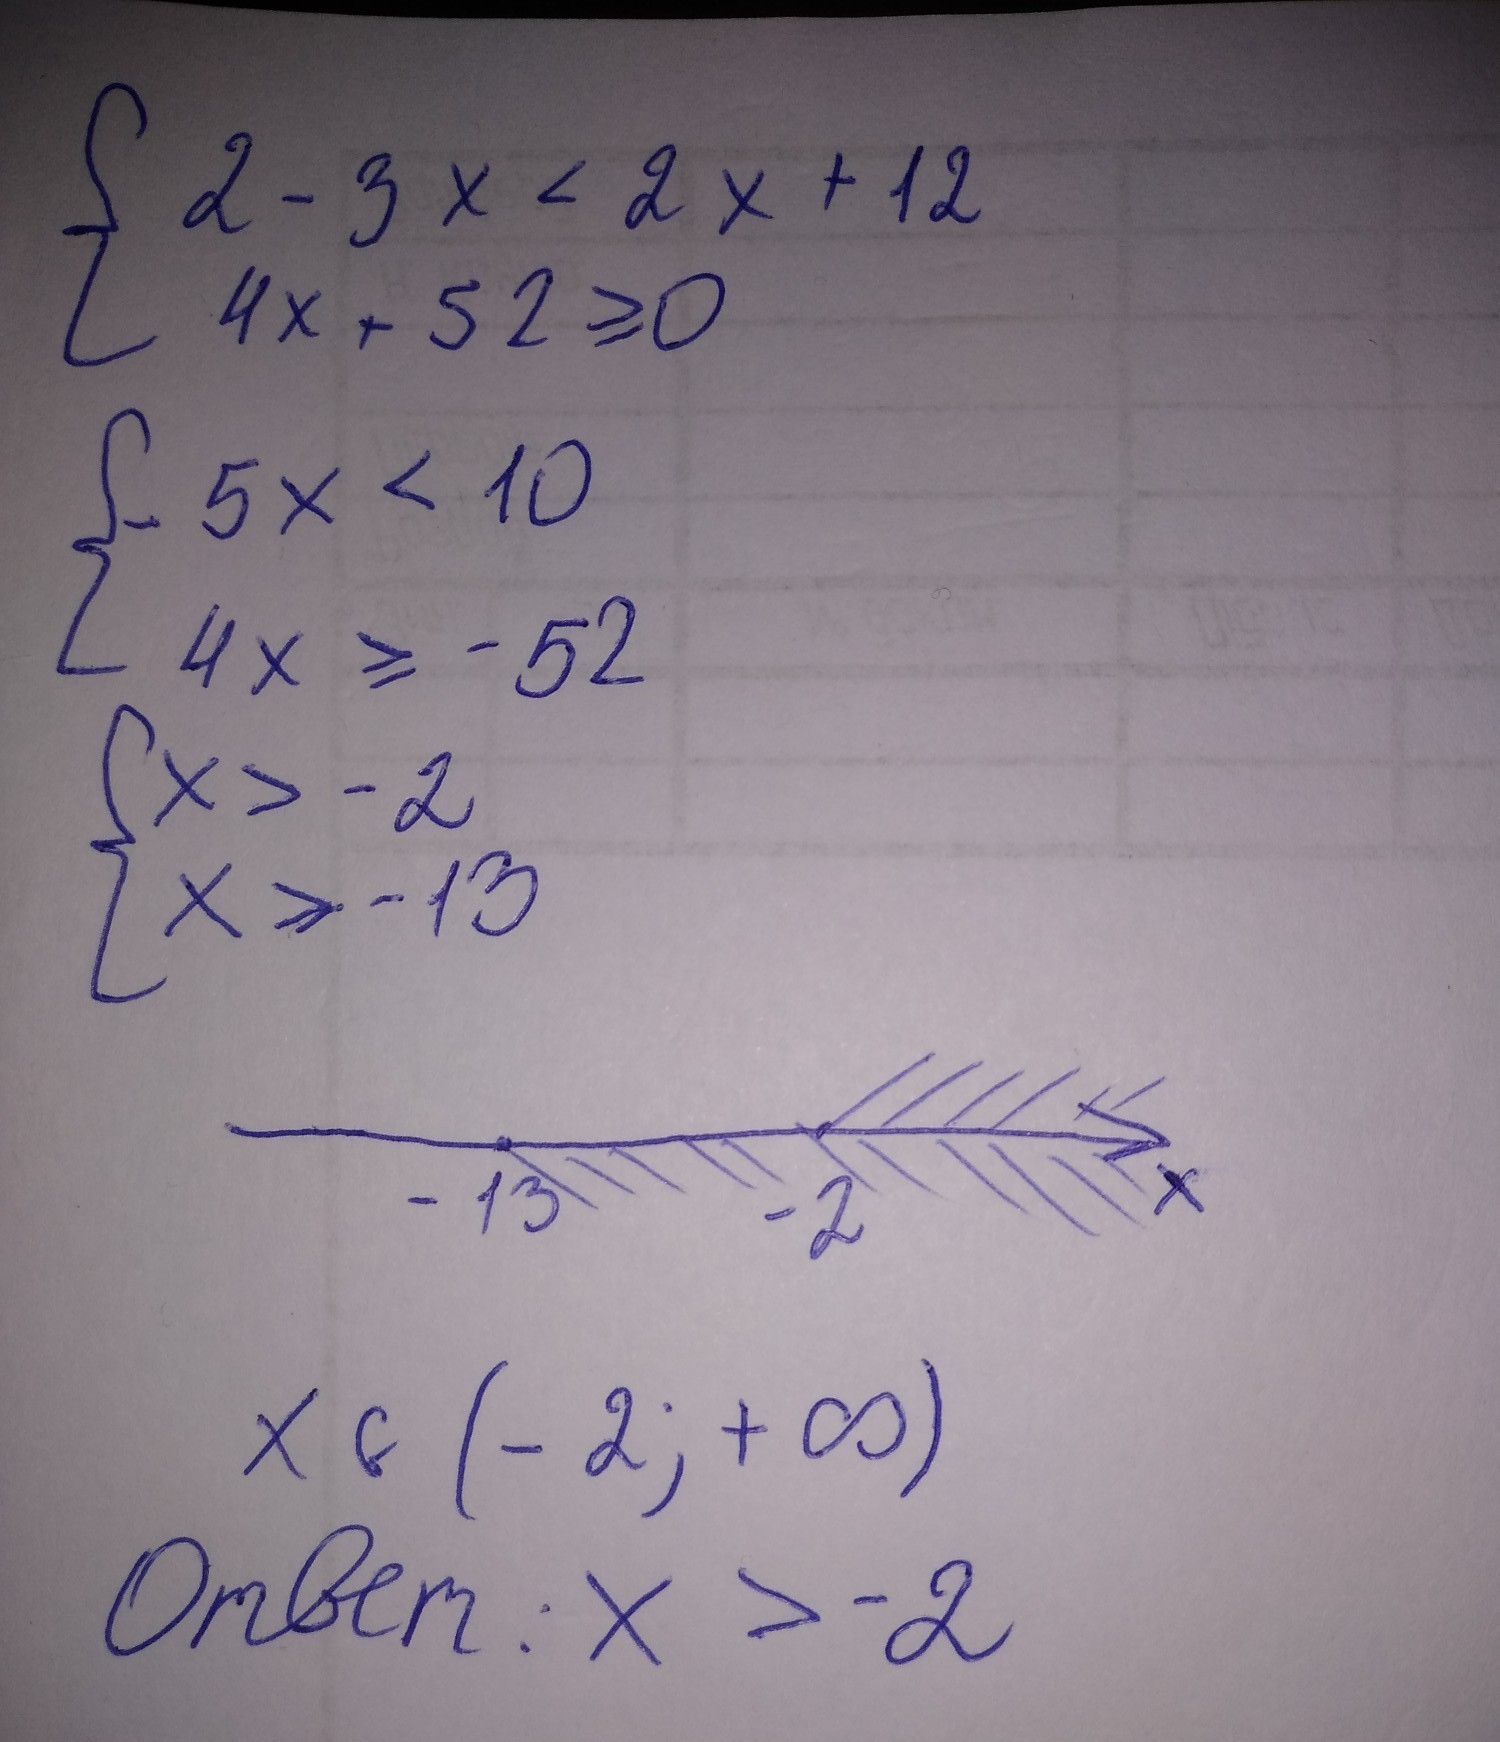 2 - 3x < 2x + 12
4x + 52 ≥ 0
- 5x < 10
4x ≥ - 52
x > - 2
x ≥ - 13
- 13 - 2 x
x ∈ (- 2; + ∞)
Ответ: x > - 2